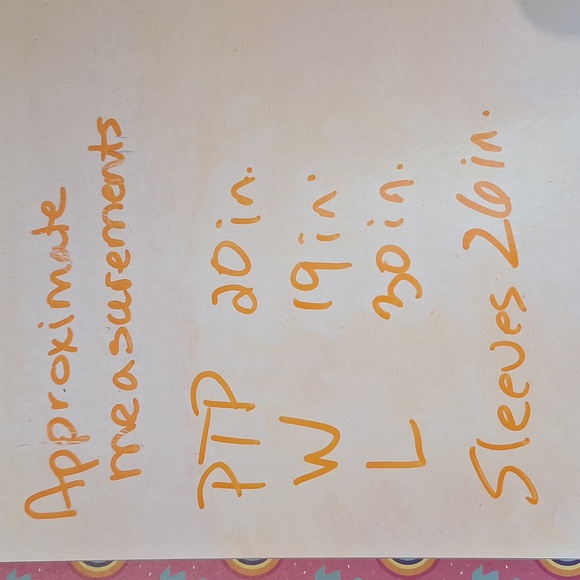 Approximate
measurements
PTP 20in.
W 19in.
L 30in.
Sleeves 26in.